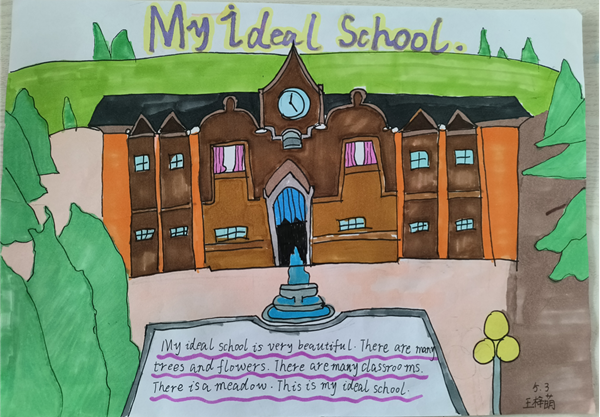 My ideal School.
My ideal school is very beautiful. There are many
trees and flowers. There are many classrooms.
There is a meadow. This is my ideal school.
5.3
王梓萌